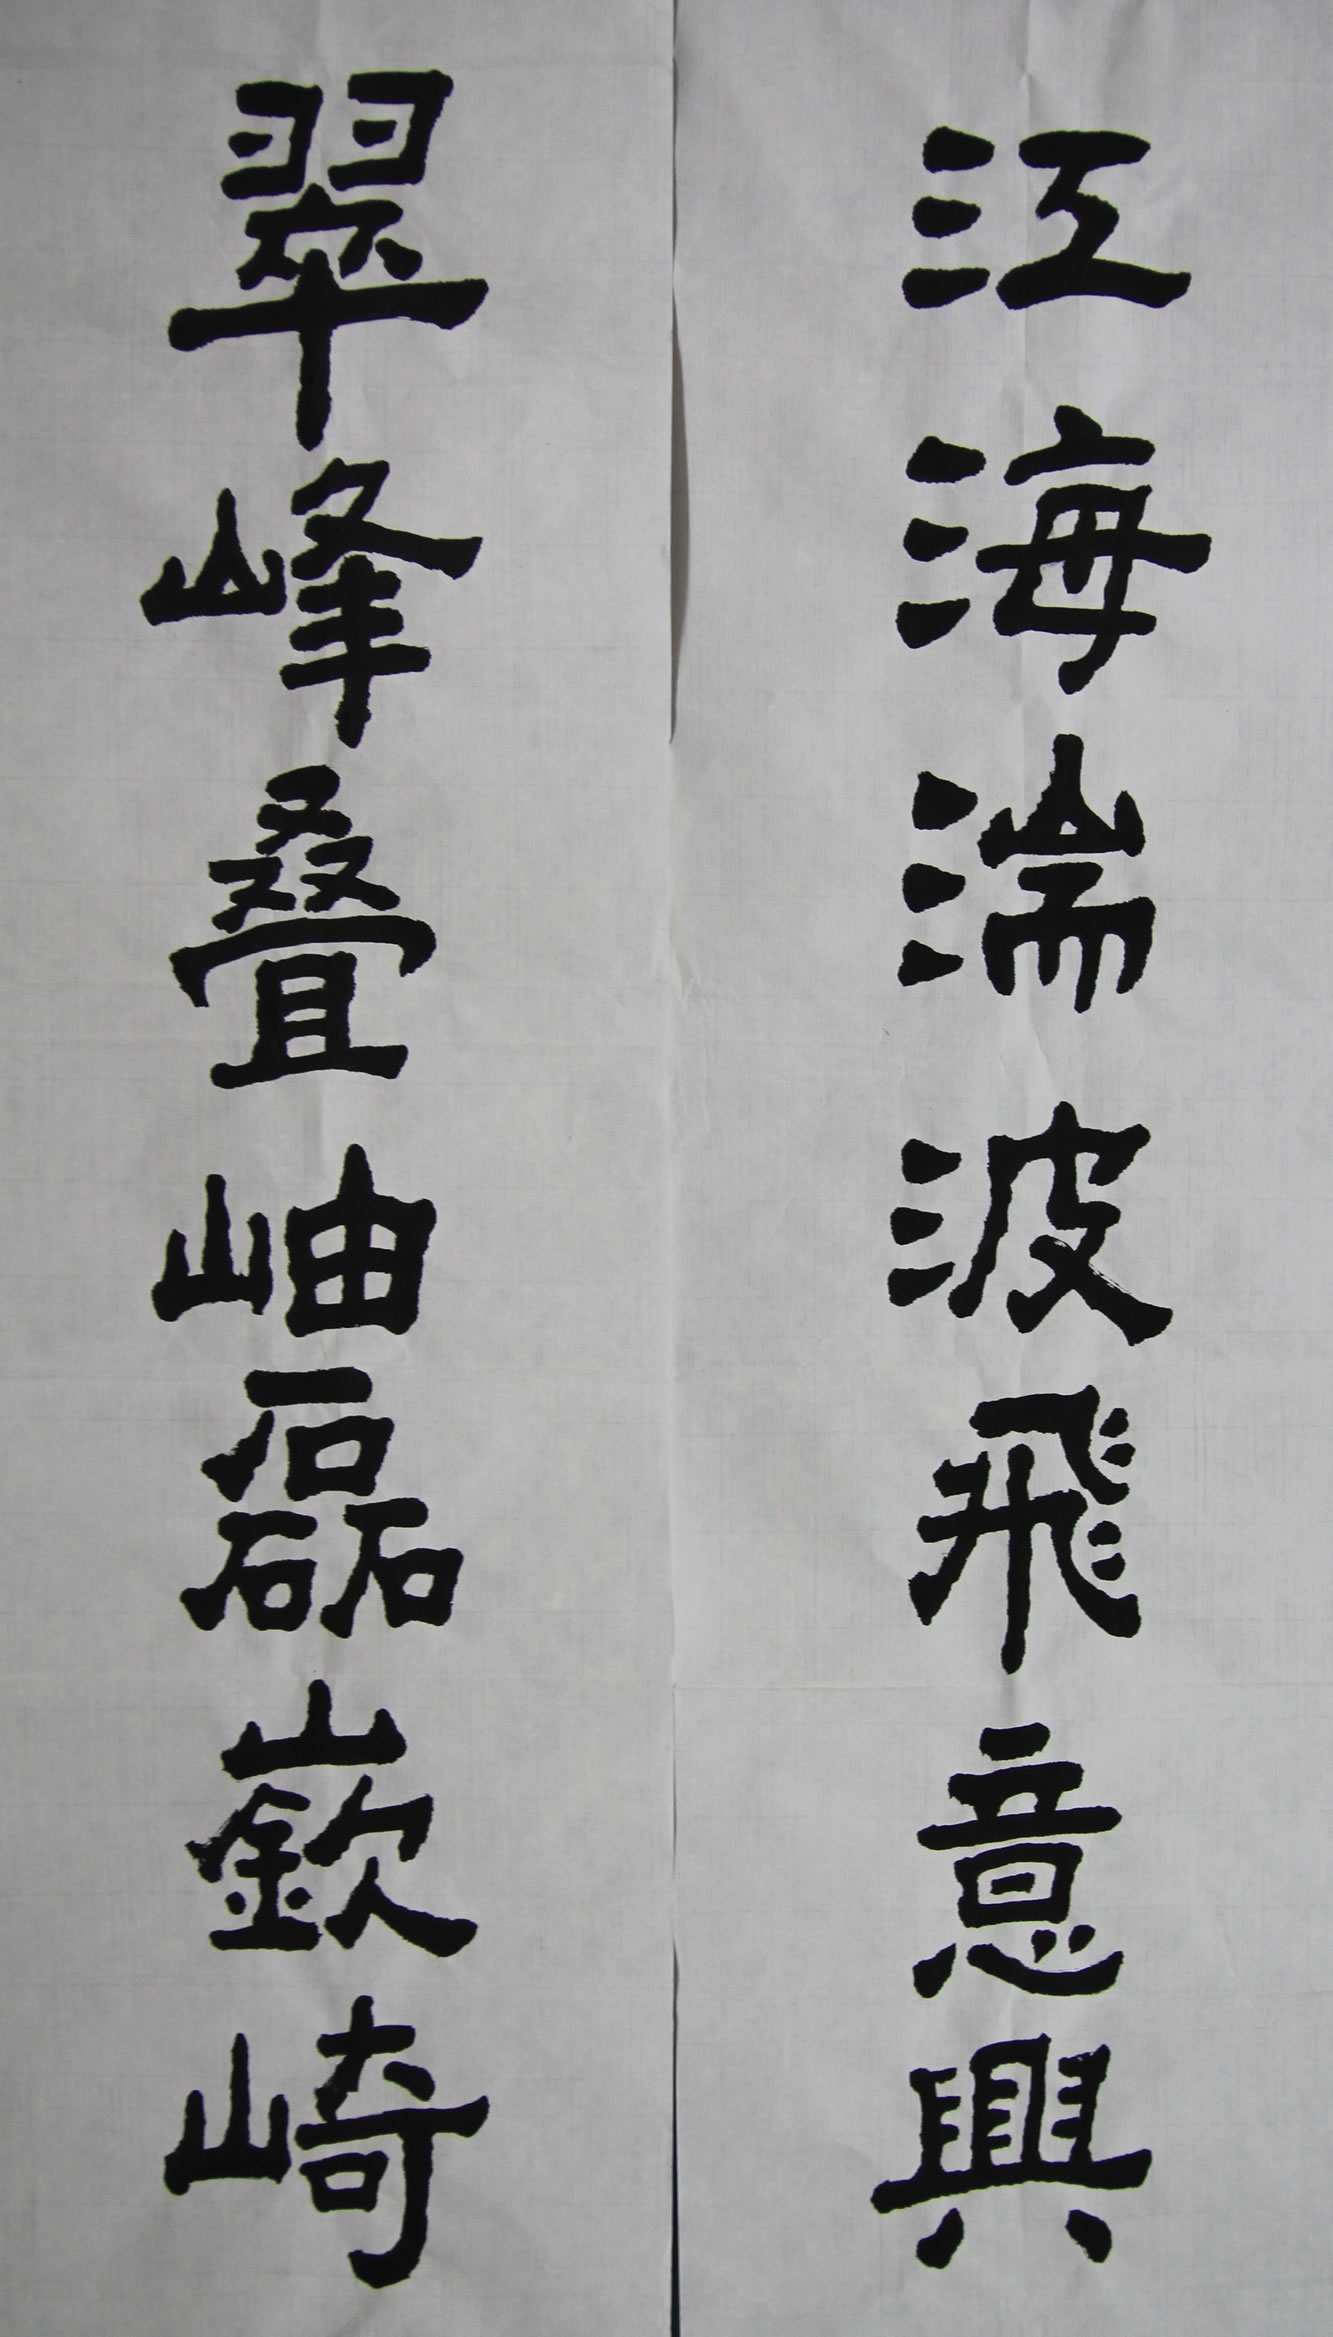 江海湍波飛意興
翠峰叠岫磊嶔崎